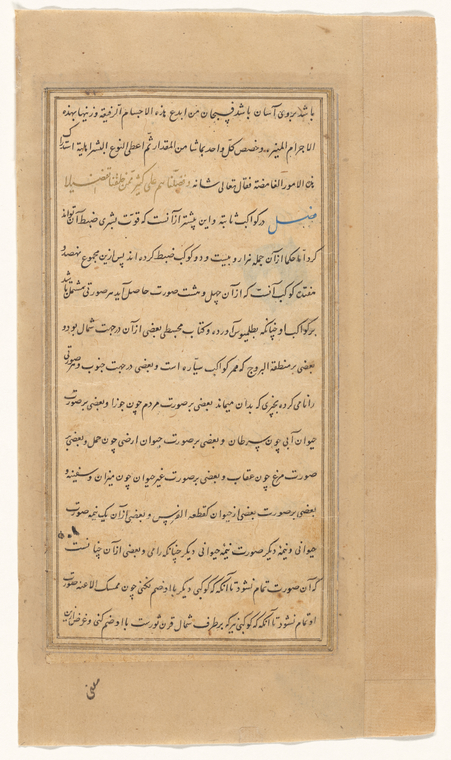 باشد بروی آسان باشد فسبحان من ابدع هذه الاجسام الرفیعة وزینها بهذه
الاجرام المنیرة وخصص کل واحد بما شا من المقدار ثم اعطی النوع البشر
من الامور الغامضة فقال تعالی شانه وفضلناهم علی کثیر ممن خلقنا تفضیلا
فصل در کواکب ثابته و این بیشتر از آنست که قوت بشری ضبط آن تواند
کرد اما حکما از آن جمله هزار و بیست و دو کوکب ضبط کرده اند پس ازین مجموع نهصد و
هفتاد کوکب آنست که از آن چهل و هشت صورت حاصل آید هر صورتی مشتمل باشد
بر کواکب او چنانکه بطلمیوس آورده در کتاب مجسطی بعضی از آن در جهت شمال بود و
بعضی بر منطقة البروج که ممر کواکب سیاره است و بعضی در جهت جنوب و هر صورتی
را نامی کرده بچیزی که بدان میماند بعضی بر صورت مردم چون جوزا و بعضی بر صورت
حیوان آبی چون سرطان و بعضی بر صورت حیوان ارضی چون حمل و بعضی
صورت مرغ چون عقاب و بعضی بر صورت غیر حیوان چون میزان و سفینه و
بعضی بر صورت بعضی از حیوان کقطعة الفرس و بعضی از آن یک نیمه صورت
حیوانی و نیمه دیگر صورت نیمه حیوانی دیگر چنانکه رامی و بعضی از آن چنانست
که آن صورت تمام نشود تا آنکه که کوکبی دیگر با او ضم نکنی چون ممسک الاعنه صورت
او تمام نشود تا آنکه که کوکبی نیر که بر طرف شمال قرن ثورست با او ضم کنی و غرض ازین